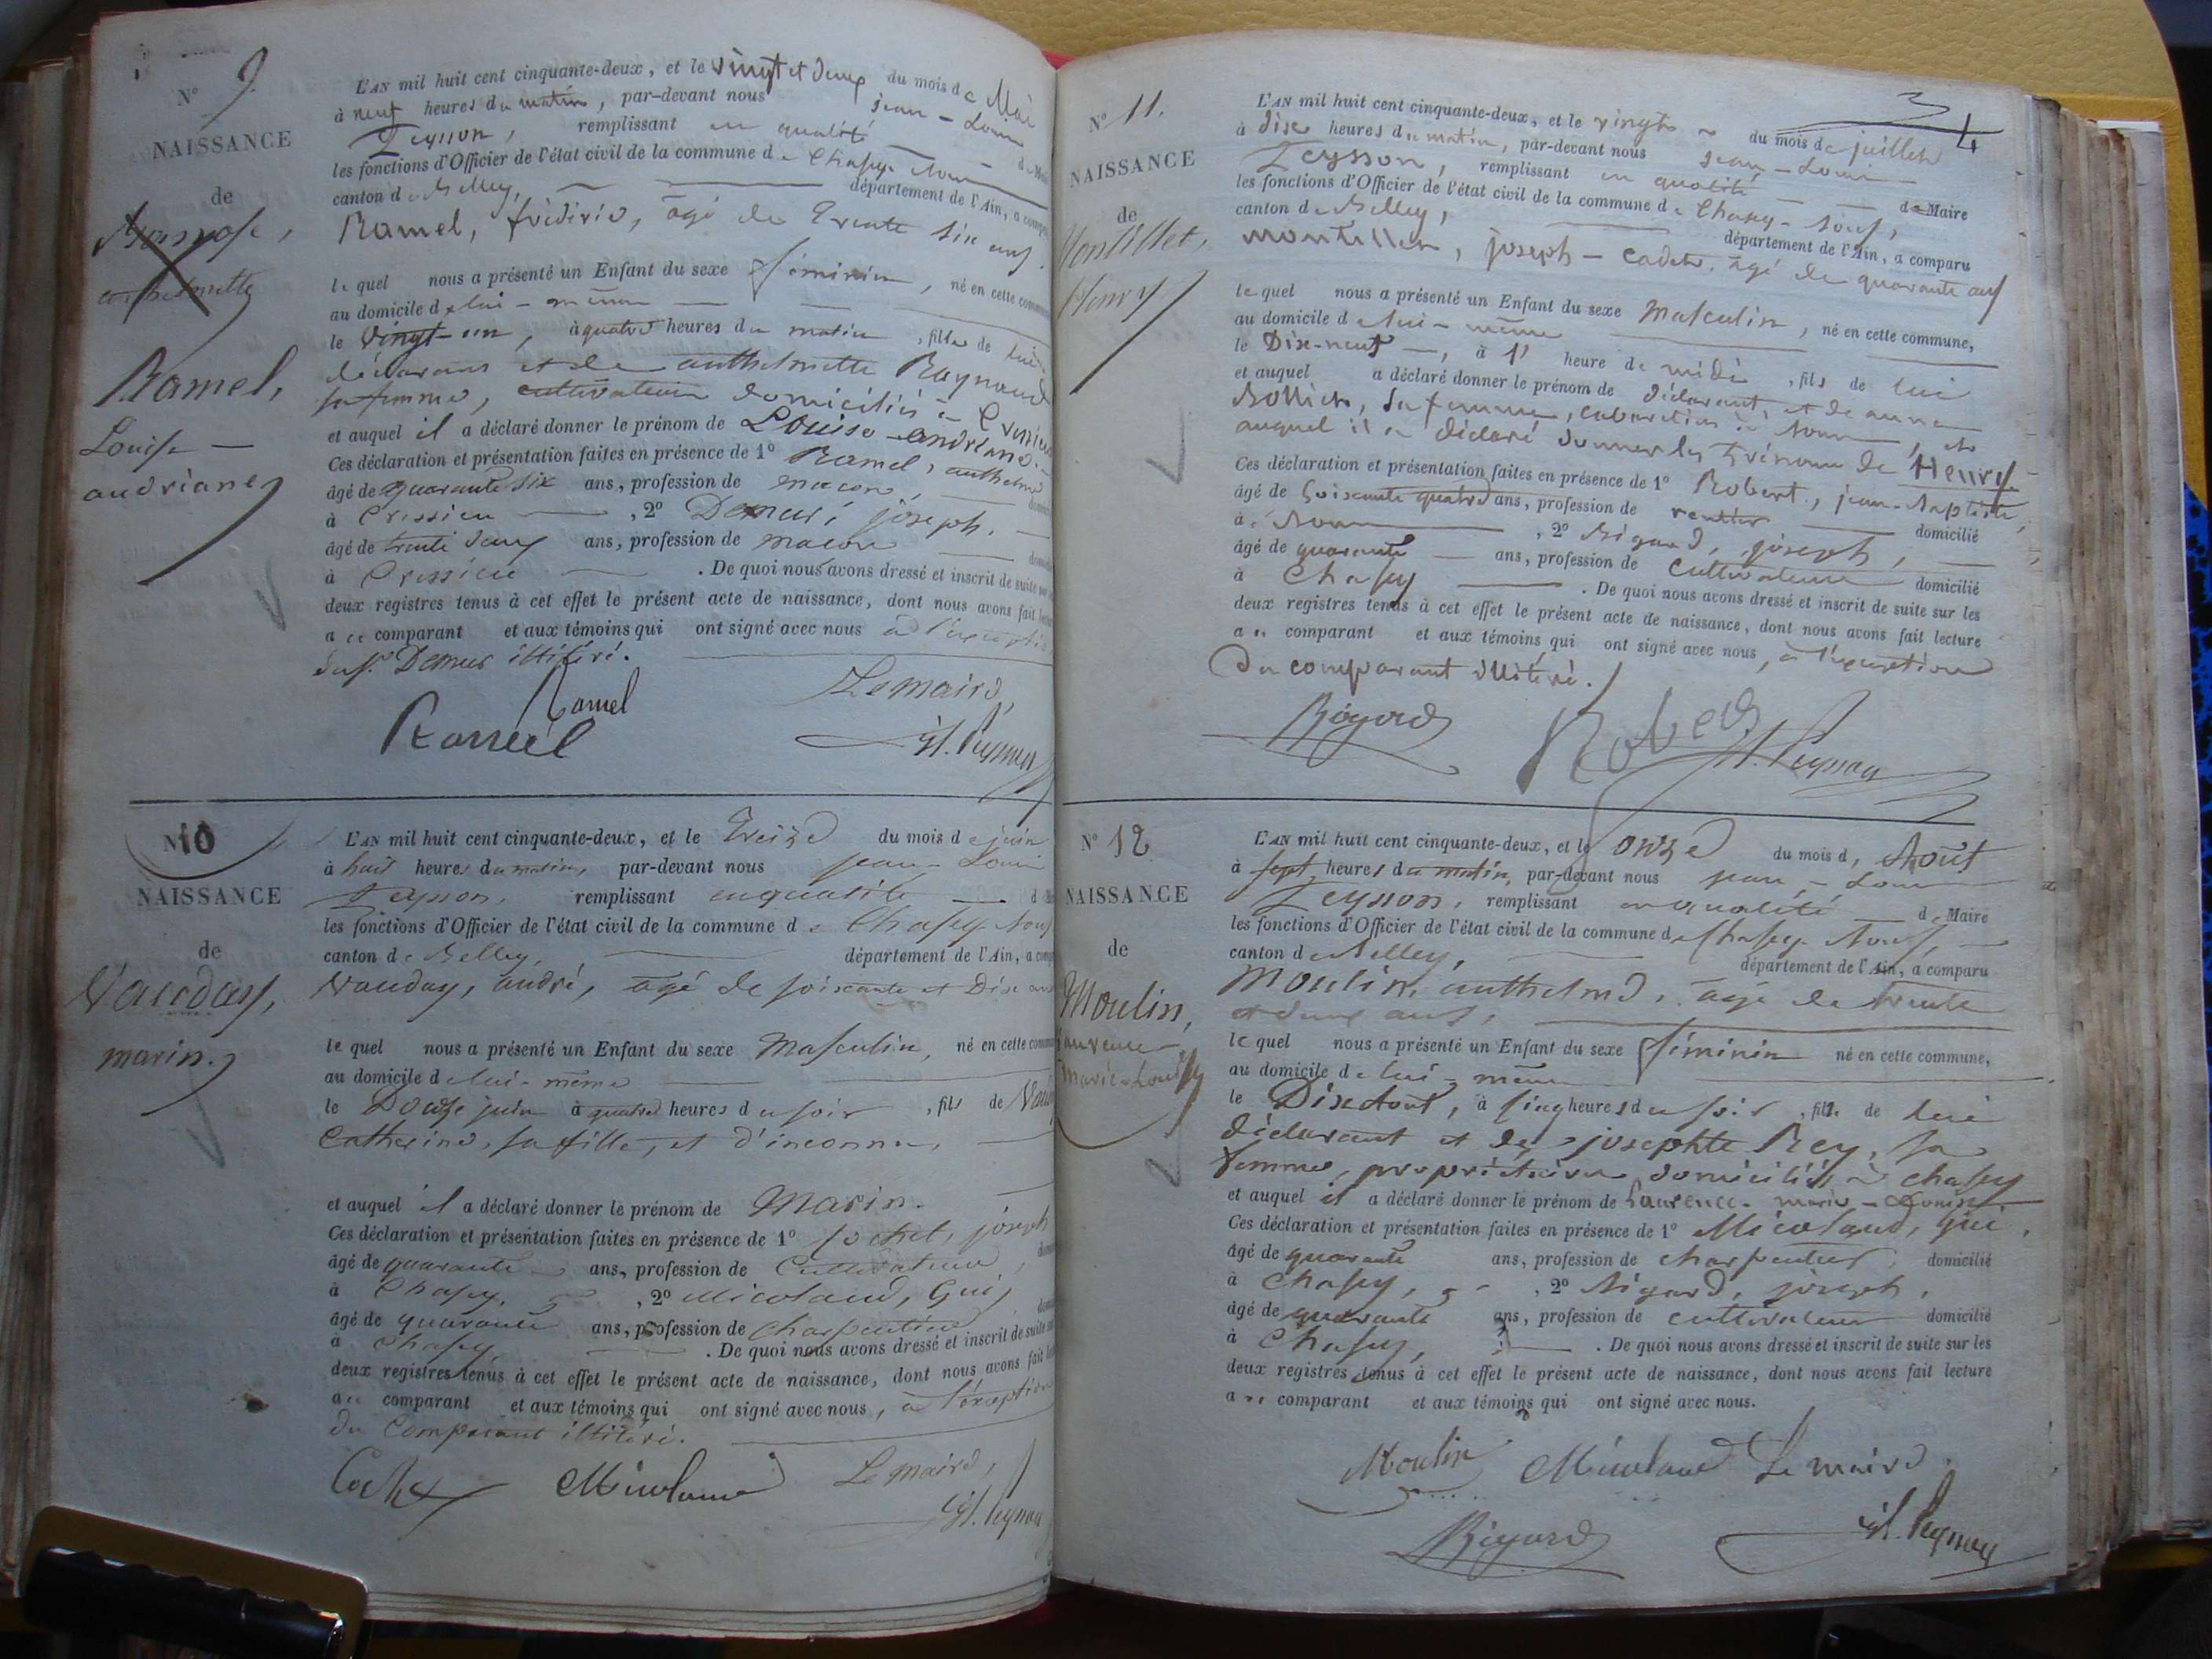 N° 9.
NAISSANCE
de
anthelmette
Ramel,
Louise —
andriane
L'AN mil huit cent cinquante-deux, et le vingt et deux du mois de Mai
à neuf heures du matin, par-devant nous jean - Louis
Peysson, remplissant en qualité de
les fonctions d'Officier de l'état civil de la commune de Chazey-
canton de Belley, département de l'Ain, a
Ramel, frédéric, âgé de trente six ans.
lequel nous a présenté un Enfant du sexe féminin, né en cette
au domicile de lui-même
le vingt-un, à quatre heures du matin, fille de lui
déclarant et de anthelmette Raynaud
sa femme, cultivateurs domiciliés à Cressieu
et auquel il a déclaré donner le prénom de Louise-andriane.
Ces déclaration et présentation faites en présence de 1° Ramel, anthelme
âgé de quarante six ans, profession de maçon,
à Cressieu, 2° Demeur, joseph,
âgé de trente deux ans, profession de maçon
à Cressieu. De quoi nous avons dressé et inscrit de suite
deux registres tenus à cet effet le présent acte de naissance, dont nous avons fait
au comparant et aux témoins qui ont signé avec nous à l'exception
dusr. illitéré.
Ramel
Ramel
Le maire,
N° 10
NAISSANCE
de
Vauday,
marin.
L'AN mil huit cent cinquante-deux, et le treize du mois de juin
à huit heures du matin, par-devant nous jean - Louis
Peysson, remplissant en qualité d
les fonctions d'Officier de l'état civil de la commune de Chazey-
canton de Belley, département de l'Ain, a
Vauday, andré, âgé de soixante et Dix ans
lequel nous a présenté un Enfant du sexe Masculin, né en cette
au domicile de lui-même
le Douze juin à quatre heures du soir, fils de
Catherine, sa fille, et d'inconnu,
et auquel il a déclaré donner le prénom de Marin.
Ces déclaration et présentation faites en présence de 1° Cochet, joseph
âgé de quarante ans, profession de Cultivateur,
à Chazey, 2° Micoland, Gui,
âgé de quarante ans, profession de charpentier
à Chazey. De quoi nous avons dressé et inscrit de suite
deux registres tenus à cet effet le présent acte de naissance, dont nous avons fait
au comparant et aux témoins qui ont signé avec nous, à l'exception
du Comparant illitéré.
Micoland
Le maire,
4
N° 11.
NAISSANCE
de
Montillet,
Henry
L'AN mil huit cent cinquante-deux, et le vingt du mois de juillet
à dix heures du matin, par-devant nous jean - Louis
Peysson, remplissant en qualité de Maire
les fonctions d'Officier de l'état civil de la commune de Chazey-
canton de Belley, département de l'Ain, a comparu
Montillet, joseph - cadet, âgé de quarante ans
lequel nous a présenté un Enfant du sexe Masculin, né en cette commune,
au domicile de lui-même
le Dix-neuf, à 1 heure de midi, fils de lui
et auquel a déclaré donner le prénom de déclarant, et de anne
sa femme, et
auquel il a déclaré donner les prénoms de Henry.
Ces déclaration et présentation faites en présence de 1° Robert, jean-Baptiste,
âgé de soixante quatre ans, profession de rentier domicilié
à, 2° Bigard, joseph,
âgé de quarante ans, profession de cultivateur domicilié
à Chazey. De quoi nous avons dressé et inscrit de suite sur les
deux registres tenus à cet effet le présent acte de naissance, dont nous avons fait lecture
au comparant et aux témoins qui ont signé avec nous, à l'exception
du comparant illitéré.
Bigard
Robert
N° 12
NAISSANCE
de
Moulin,
Laurence-
marie-Louise
L'AN mil huit cent cinquante-deux, et le onze du mois d'Août
à sept heures du matin, par-devant nous jean - Louis
Peysson, remplissant en qualité de Maire
les fonctions d'Officier de l'état civil de la commune de Chazey-
canton de Belley, département de l'Ain, a comparu
Moulin, anthelme, âgé de trente
et deux ans,
lequel nous a présenté un Enfant du sexe féminin né en cette commune,
au domicile de lui-même
le Dix Août, à cinq heures du soir, fille de lui
déclarant et de josephte Rey, sa
femme, propriétaires domiciliés à chazey
et auquel il a déclaré donner le prénom de Laurence-marie-Louise
Ces déclaration et présentation faites en présence de 1° Micoland, gui,
âgé de quarante ans, profession de charpentier, domicilié
à Chazey, 2° Bigard, joseph,
âgé de quarante ans, profession de cultivateur domicilié
à Chazey,. De quoi nous avons dressé et inscrit de suite sur les
deux registres tenus à cet effet le présent acte de naissance, dont nous avons fait lecture
au comparant et aux témoins qui ont signé avec nous.
Moulin Micoland Le maire
Bigard